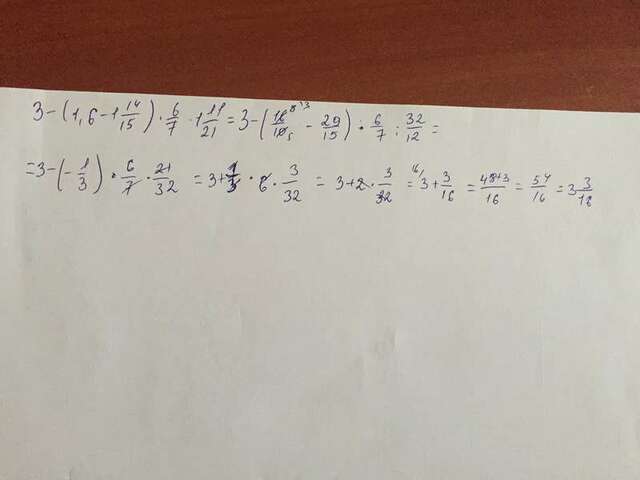 3 - (1,6 - 1 14/15) · 6/7 : 1 11/21 = 3 - (16/10 - 29/15) · 6/7 : 32/12 =
= 3 - (- 1/3) · 6/7 · 21/32 = 3 + 1/3 · 6 · 3/32 = 3 + 2 · 3/32 = 3 + 3/16 = 48+3/16 = 51/16 = 3 3/16